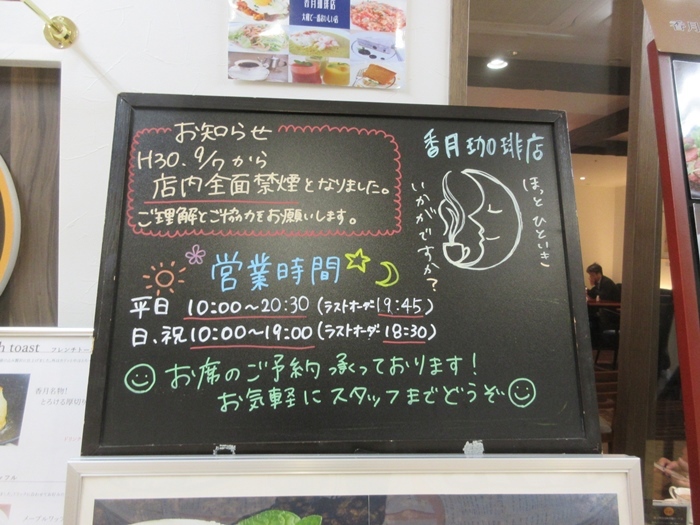 香月珈琲店
お知らせ
H30. 9/7 から
店内全面禁煙となりました。
ご理解とご協力をお願いします。
香月珈琲店
ほっと ひといき
いかがですか？
営業時間
平日 10:00〜20:30 (ラストオーダー19:45)
日、祝 10:00〜19:00 (ラストオーダ 18:30)
お席のご予約 承っております！
お気軽に スタッフまでどうぞ
香月
h toast フレンチトー
香月名物!
とろける厚切り